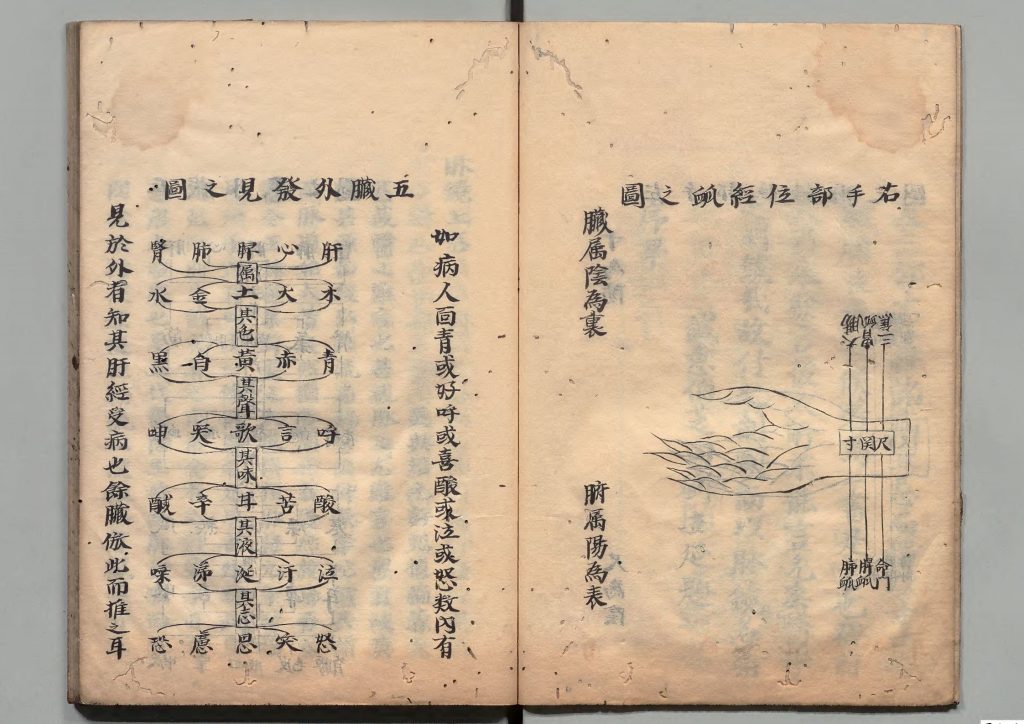 右手部位經䘑之圖
三焦
胃䘑
大腸
尺関寸
命門
脾䘑
肺䘑
臟属陰為裏
腑属陽為表
五臟外發見之圖
如病人面青或好呼或喜酸或泣或怒数內有
肝心脾肺腎
属
木火土金水
其色
青赤黃白黑
其聲
呼言歌哭呻
其味
酸苦甘辛鹹
其液
泣汗涎涕唾
其志
怒笑思慮恐
見於外者知其肝經受病也餘臟倣此而推之耳